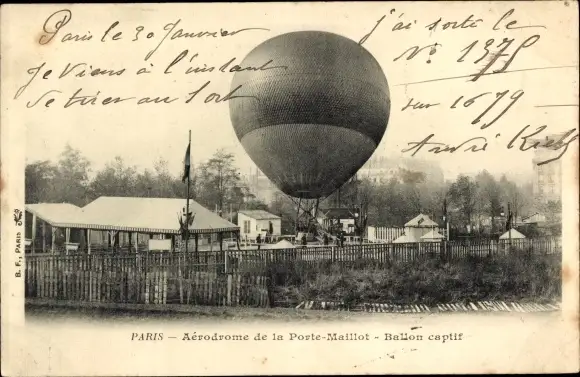 Paris le 30 Janvier
Je Viens à l'instant de
Se tirer au Sort
j'ai sorti le
No. 1375
sur 1679
André
B. F., PARIS
PARIS — Aérodrome de la Porte-Maillot - Ballon captif